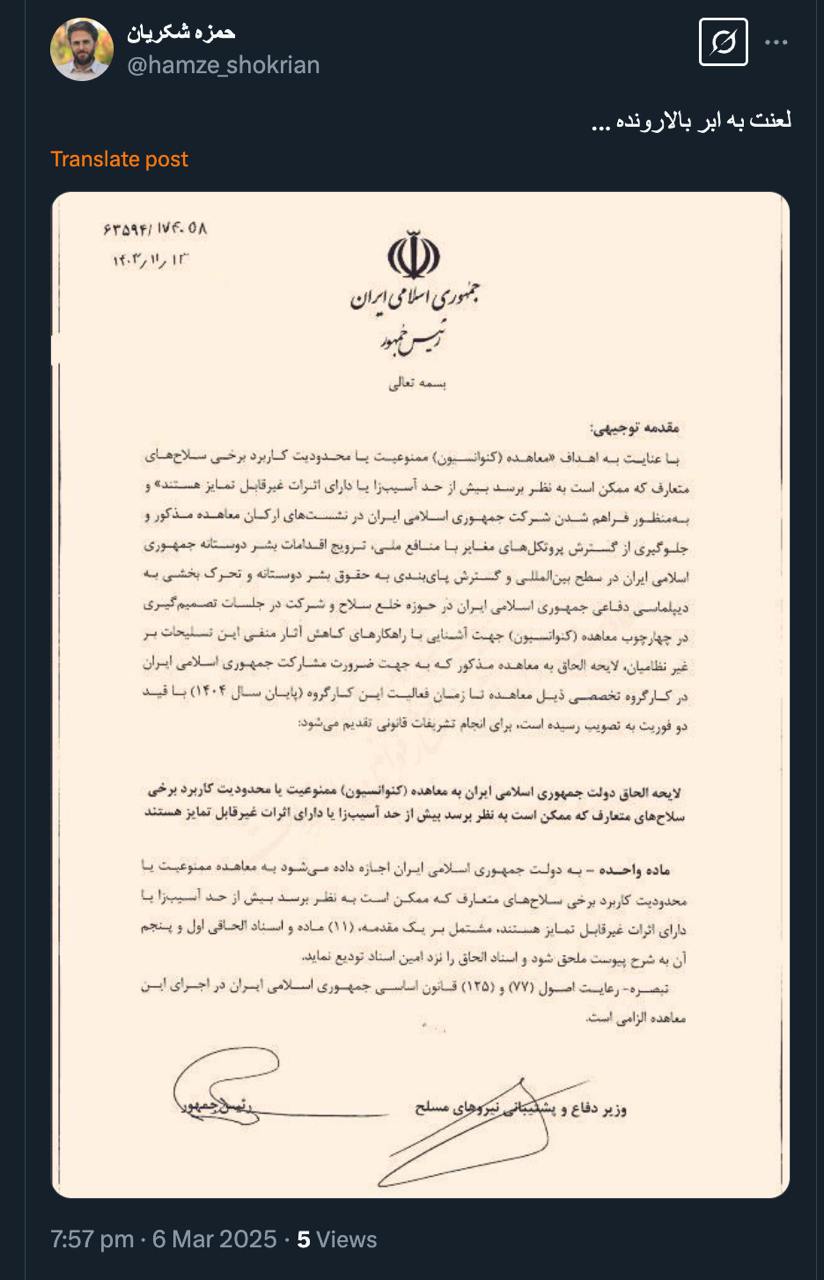 حمزه شکریان
@hamze_shokrian
لعنت به ابر بالارونده ...
Translate post
۶۳۵۹۴/۱۷۴۰۵۸
۱۴۰۳/۱۱/۱۳
جمهوری اسلامی ایران
رئیس جمهور
بسمه تعالی
مقدمه توجیهی:
با عنایت به اهداف «معاهده (کنوانسیون) ممنوعیت یا محدودیت کاربرد برخی سلاح‌های
متعارف که ممکن است به نظر برسد بیش از حد آسیب‌زا یا دارای اثرات غیرقابل تمایز هستند» و
به‌منظور فراهم شدن شرکت جمهوری اسلامی ایران در نشست‌های ارکان معاهده مذکور و
جلوگیری از گسترش پروتکل‌های مغایر با منافع ملی، ترویج اقدامات بشر دوستانه جمهوری
اسلامی ایران در سطح بین‌المللی و گسترش پای‌بندی به حقوق بشر دوستانه و تحرک بخشی به
دیپلماسی دفاعی جمهوری اسلامی ایران در حوزه خلع سلاح و شرکت در جلسات تصمیم‌گیری
در چهارچوب معاهده (کنوانسیون) جهت آشنایی با راهکارهای کاهش آثار منفی این تسلیحات بر
غیر نظامیان، لایحه الحاق به معاهده مذکور که به جهت ضرورت مشارکت جمهوری اسلامی ایران
در کارگروه تخصصی ذیل معاهده تا زمان فعالیت این کارگروه (پایان سال ۱۴۰۴) با قید
دو فوریت به تصویب رسیده است، برای انجام تشریفات قانونی تقدیم می‌شود:
لایحه الحاق دولت جمهوری اسلامی ایران به معاهده (کنوانسیون) ممنوعیت یا محدودیت کاربرد برخی
سلاح‌های متعارف که ممکن است به نظر برسد بیش از حد آسیب‌زا یا دارای اثرات غیرقابل تمایز هستند
ماده واحده – به دولت جمهوری اسلامی ایران اجازه داده می‌شود به معاهده ممنوعیت یا
محدودیت کاربرد برخی سلاح‌های متعارف که ممکن است به نظر برسد بیش از حد آسیب‌زا یا
دارای اثرات غیرقابل تمایز هستند، مشتمل بر یک مقدمه، (۱۱) ماده و اسناد الحاقی اول و پنجم
آن به شرح پیوست ملحق شود و اسناد الحاق را نزد امین اسناد تودیع نماید.
تبصره- رعایت اصول (۷۷) و (۱۲۵) قانون اساسی جمهوری اسلامی ایران در اجرای این
معاهده الزامی است.
وزیر دفاع و پشتیبانی نیروهای مسلح
رئیس جمهور
7:57 pm · 6 Mar 2025 · 5 Views